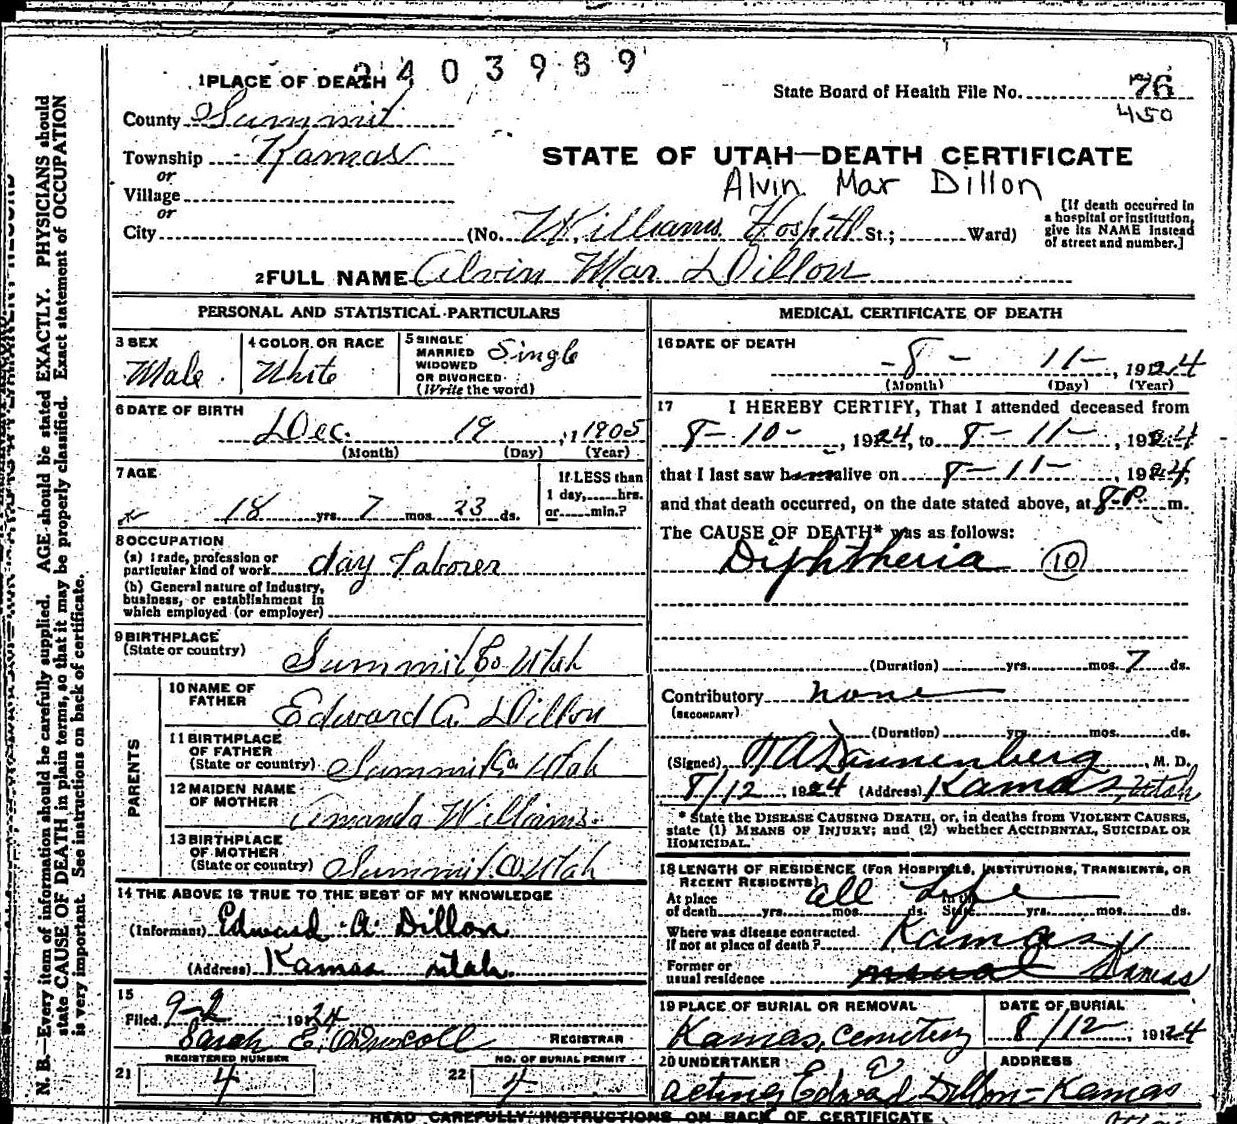 2403989
1 PLACE OF DEATH
State Board of Health File No. 76
450
County Summit
Township Kamas
or
Village
or
City
STATE OF UTAH—DEATH CERTIFICATE
Alvin Mar Dillon
(No. Williams Hospital St.; Ward)
[If death occurred in
a hospital or institution,
give its NAME instead
of street and number.]
2 FULL NAME Alvin Mar Dillon
PERSONAL AND STATISTICAL PARTICULARS
3 SEX
Male
4 COLOR OR RACE
White
5 SINGLE
MARRIED
WIDOWED
OR DIVORCED
(Write the word)
Single
6 DATE OF BIRTH
Dec. 19, 1905
(Month) (Day) (Year)
7 AGE
18 yrs. 7 mos. 23 ds.
If LESS than
1 day, hrs.
or min.?
8 OCCUPATION
(a) Trade, profession or
particular kind of work day Laborer
(b) General nature of Industry,
business, or establishment in
which employed (or employer)
9 BIRTHPLACE
(State or country) Summit Co. Utah
PARENTS
10 NAME OF
FATHER Edward A. Dillon
11 BIRTHPLACE
OF FATHER
(State or country) Summit Co. Utah
12 MAIDEN NAME
OF MOTHER Amanda Williams.
13 BIRTHPLACE
OF MOTHER
(State or country) Summit Co Utah
14 THE ABOVE IS TRUE TO THE BEST OF MY KNOWLEDGE
(Informant) Edward A. Dillon
(Address) Kamas Utah.
15
Filed 9-2 1924
Sarah E. O'Driscoll REGISTRAR
REGISTERED NUMBER
21 4
NO. OF BURIAL PERMIT
22 4
MEDICAL CERTIFICATE OF DEATH
16 DATE OF DEATH
8 - 11 -, 1924
(Month) (Day) (Year)
17 I HEREBY CERTIFY, That I attended deceased from
8-10-, 1924, to 8-11-, 1924
that I last saw h alive on 8-11-, 1924,
and that death occurred, on the date stated above, at 8 P. m.
The CAUSE OF DEATH* was as follows:
Diphtheria 10
(Duration) yrs. mos. 7 ds.
Contributory none
(SECONDARY)
(Duration) yrs. mos. ds.
(Signed) Dannenberg, M. D.
8/12, 1924 (Address) Kamas, Utah
* State the DISEASE CAUSING DEATH, or, in deaths from VIOLENT CAUSES,
state (1) MEANS OF INJURY; and (2) whether ACCIDENTAL, SUICIDAL OR
HOMICIDAL.
18 LENGTH OF RESIDENCE (FOR HOSPITALS, INSTITUTIONS, TRANSIENTS, OR
RECENT RESIDENTS)
all Life
At place In the
of death yrs. mos. ds. State yrs. mos. ds.
Where was disease contracted
if not at place of death? Kamas
Former or
usual residence Kamas
19 PLACE OF BURIAL OR REMOVAL
Kamas, Cemetery
DATE OF BURIAL
8/12, 1924
20 UNDERTAKER ADDRESS
acting Edward A Dillon - Kamas
READ CAREFULLY INSTRUCTIONS ON BACK OF CERTIFICATE
N. B.—Every item of information should be carefully supplied. AGE should be stated EXACTLY. PHYSICIANS should
state CAUSE OF DEATH in plain terms, so that it may be properly classified. Exact statement of OCCUPATION
is very important. See instructions on back of certificate.